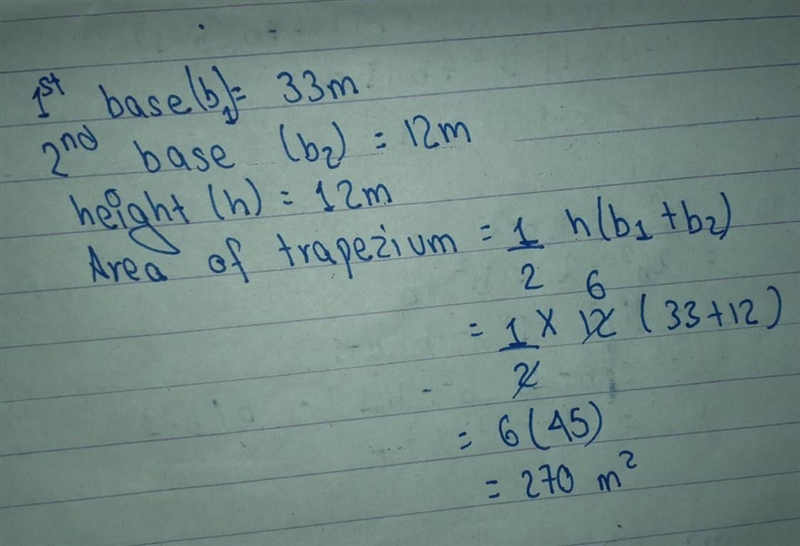 1st base(b1)= 33m
2nd base (b2) = 12m
height (h) = 12m
Area of trapezium = 1/2 h(b1+b2)
6
= 1/2 × 12 (33+12)
= 6(45)
= 270 m²